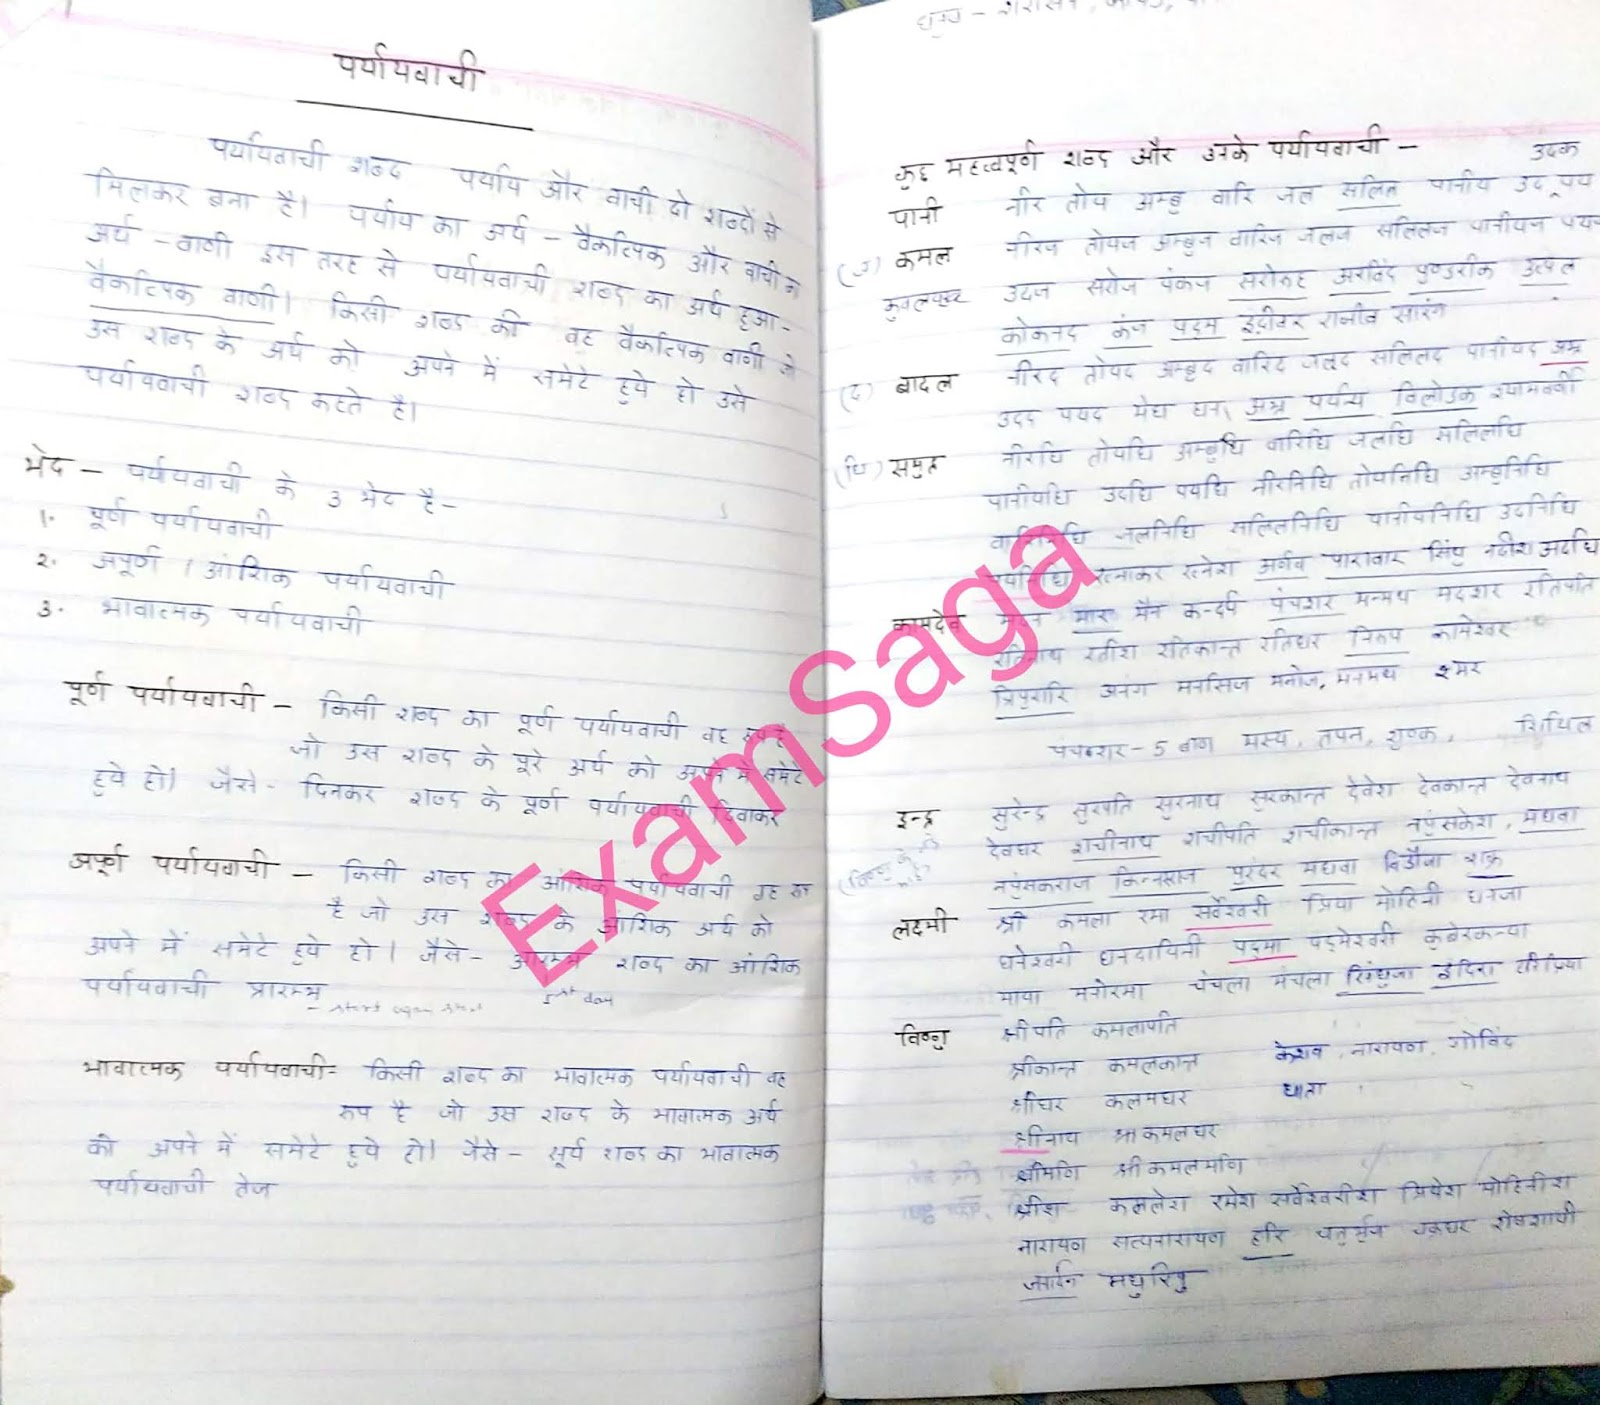 पर्यायवाची
पर्यायवाची शब्द पर्याय और वाची दो शब्दों से
मिलकर बना है। पर्याय का अर्थ - वैकल्पिक और वाची का
अर्थ - वाणी इस तरह से पर्यायवाची शब्द का अर्थ हुआ -
वैकल्पिक वाणी। किसी शब्द की वह वैकल्पिक वाणी जो
उस शब्द के अर्थ को अपने में समेटे हुये हो उसे
पर्यायवाची शब्द कहते है।
भेद - पर्यायवाची के 3 भेद है -
1. पूर्ण पर्यायवाची
2. अपूर्ण / आंशिक पर्यायवाची
3. भावात्मक पर्यायवाची
पूर्ण पर्यायवाची - किसी शब्द का पूर्ण पर्यायवाची वह रूप है
जो उस शब्द के पूरे अर्थ को अपने में समेटे
हुये हो। जैसे - दिनकर शब्द के पूर्ण पर्यायवाची दिवाकर
अपूर्ण पर्यायवाची - किसी शब्द का आंशिक पर्यायवाची वह रूप
है जो उस शब्द के आंशिक अर्थ को
अपने में समेटे हुये हो। जैसे - आरम्भ शब्द का आंशिक
पर्यायवाची प्रारम्भ
भावात्मक पर्यायवाची - किसी शब्द का भावात्मक पर्यायवाची वह
रूप है जो उस शब्द के भावात्मक अर्थ
को अपने में समेटे हुये हो। जैसे - सूर्य शब्द का भावात्मक
पर्यायवाची तेज
धनुष -
कुछ महत्वपूर्ण शब्द और उनके पर्यायवाची - उदक
पानी नीर तोय अम्बु वारि जल सलिल पानीय उद पय
(ज) कमल नीरज तोयज अम्बुज वारिज जलज सलिलज पानीयज पयज
उदज सरोज पंकज सरोरुह अरविंद पुण्डरीक उत्पल
कोकनद कंज पदम इंदीवर राजीव सारंग
(द) बादल नीरद तोयद अम्बुद वारिद जलद सलिलद पानीयद अभ्र
उदद पयद मेघ घन, अभ्र पर्यन्य विलोडक श्यामवर्णी
(धि) समुद्र नीरधि तोयधि अम्बुधि वारिधि जलधि सलिलधि
पानीयधि उदधि पयधि नीरनिधि तोयनिधि अम्बुनिधि
वारिनिधि जलनिधि सलिलनिधि पानीयनिधि उदनिधि
पयनिधि रत्नाकर रत्नेश अर्णव पारावार सिंधु नदीश अदधि
कामदेव मदन मार मैन कन्दर्प पंचशर मन्मथ मदशर रतिपति
रतिनाथ रतीश रतिकान्त रतिधर कामेश्वर
त्रिपुरारि अनंग मनसिज मनोज, मनमथ स्मर
पंचशर - 5 बाण भस्य, तपन, शुष्क, शिथिल
इन्द्र सुरेन्द्र सुरपति सुरनाथ सुरकान्त देवेश देवकान्त देवनाथ
देवधर शचीनाथ शचीपति शचीकान्त नपुंसकेश, मघवा
नपुंसकराज किन्नरराज पुरंदर मघवा विडौजा शक्र
लक्ष्मी श्री कमला रमा सर्वेश्वरी प्रिया मोहिनी धनजा
धनेश्वरी धनदायिनी पद्मा पद्मेश्वरी कुबेरकन्या
माया मनोरमा चंचला मंचला सिंधुजा इंदिरा हरिप्रिया
विष्णु श्रीपति कमलापति
श्रीकान्त कमलकान्त केशव, नारायण, गोविंद
श्रीधर कलमधर धाता
श्रीनाथ श्रीकमलधर
श्रीमणि श्रीकमलमणि
श्रीश कमलेश रमेश सर्वेश्वरीश प्रियेश मोहिनीश
नारायण सत्यनारायण हरि चतुर्भुज चक्रधर शेषशायी
जनार्दन मधुरिपु
ExamSaga